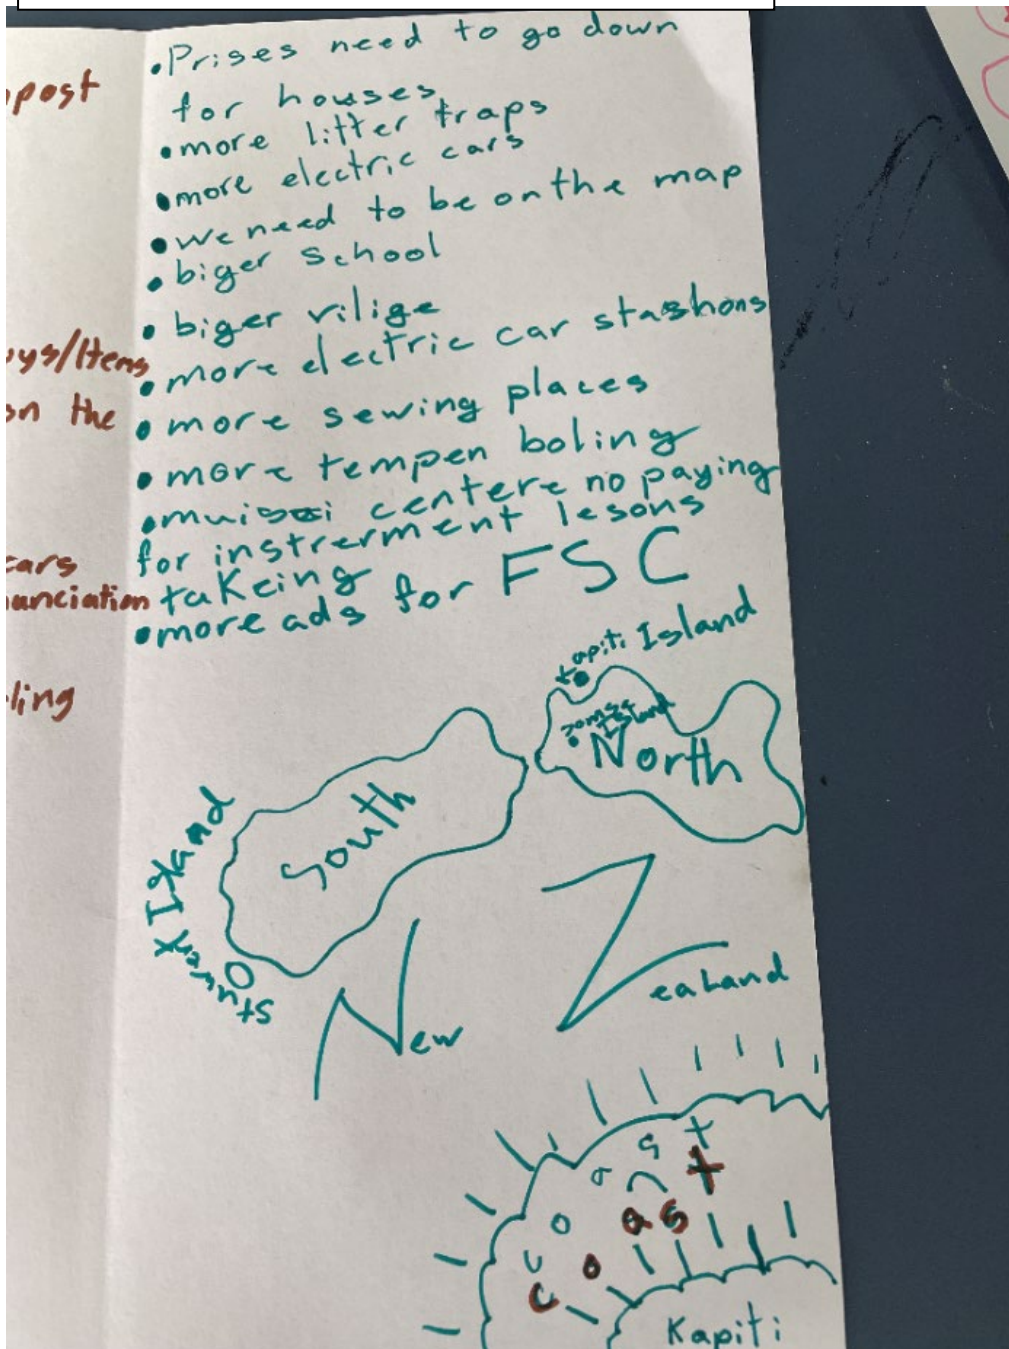 post
ys/Items
on the
cars
unciation
ling
•Prises need to go down
for houses
•more litter traps
•more electric cars
•we need to be on the map
•biger school
•biger vilige
•more electric car stashons
•more sewing places
•more tempen boling
centere no paying
for instrerment lesons
takeing
•more ads for FSC
Kapiti Island
Somes
Island
North
South
Sturert Island
New Zealand
coast
coast
Kapiti